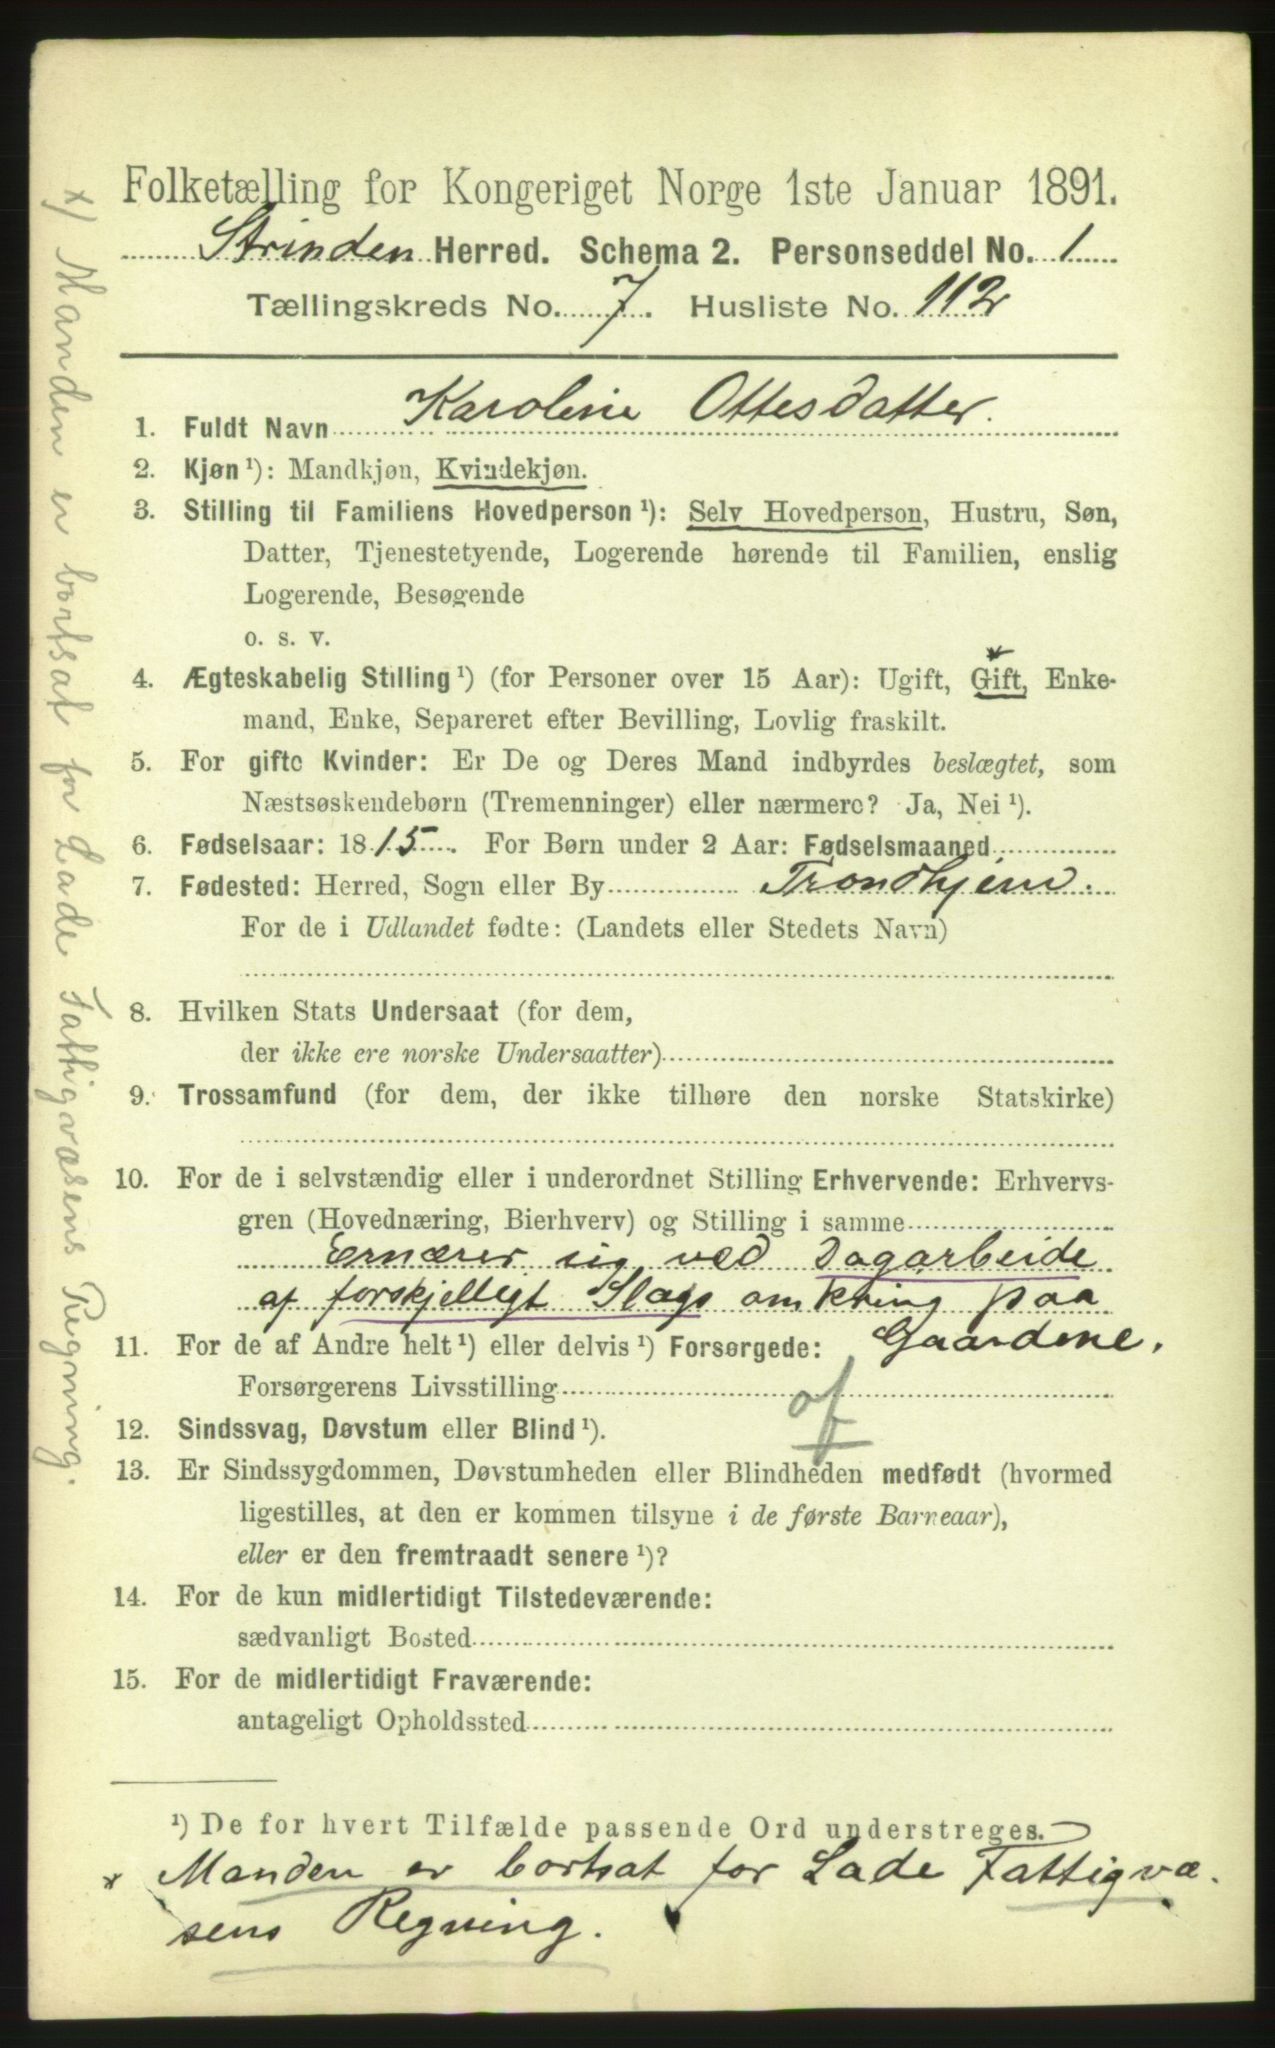 Folketælling for Kongeriget Norge 1ste Januar 1891.
Strinden Herred. Schema 2. Personseddel No. 1
Tællingskreds No. 7. Husliste No. 112
1. Fuldt Navn Karoline Ottesdatter.
2. Kjøn ¹): Mandkjøn, Kvindekjøn.
3. Stilling til Familiens Hovedperson ¹): Selv Hovedperson, Hustru, Søn,
Datter, Tjenestetyende, Logerende hørende til Familien, enslig
Logerende, Besøgende
o. s. v.
4. Ægteskabelig Stilling ¹) (for Personer over 15 Aar): Ugift, Gift, Enke-
mand, Enke, Separeret efter Bevilling, Lovlig fraskilt.
5. For gifte Kvinder: Er De og Deres Mand indbyrdes beslægtet, som
Næstsøskendebørn (Tremenninger) eller nærmere? Ja, Nei ¹).
6. Fødselsaar: 1815. For Børn under 2 Aar: Fødselsmaaned
7. Fødested: Herred, Sogn eller By Trondhjem.
For de i Udlandet fødte: (Landets eller Stedets Navn)
8. Hvilken Stats Undersaat (for dem,
der ikke ere norske Undersaatter)
9. Trossamfund (for dem, der ikke tilhøre den norske Statskirke)
10. For de i selvstændig eller i underordnet Stilling Erhvervende: Erhvervs-
gren (Hovednæring, Bierhverv) og Stilling i samme
Ernærer sig ved Dagarbeide
af forskjelligt Slags omkring paa
Gaardene.
11. For de af Andre helt ¹) eller delvis ¹) Forsørgede:
Forsørgerens Livsstilling
of
12. Sindssvag, Døvstum eller Blind ¹).
13. Er Sindssygdommen, Døvstumheden eller Blindheden medfødt (hvormed
ligestilles, at den er kommen tilsyne i de første Barneaar),
eller er den fremtraadt senere ¹)?
14. For de kun midlertidigt Tilstedeværende:
sædvanligt Bosted
15. For de midlertidigt Fraværende:
antageligt Opholdssted
¹) De for hvert Tilfælde passende Ord understreges.
* Manden er bortsat for Lade Fattigvæ-
sens Regning.
x) Manden er bortsat for Lade Fattigvæsens Regning.